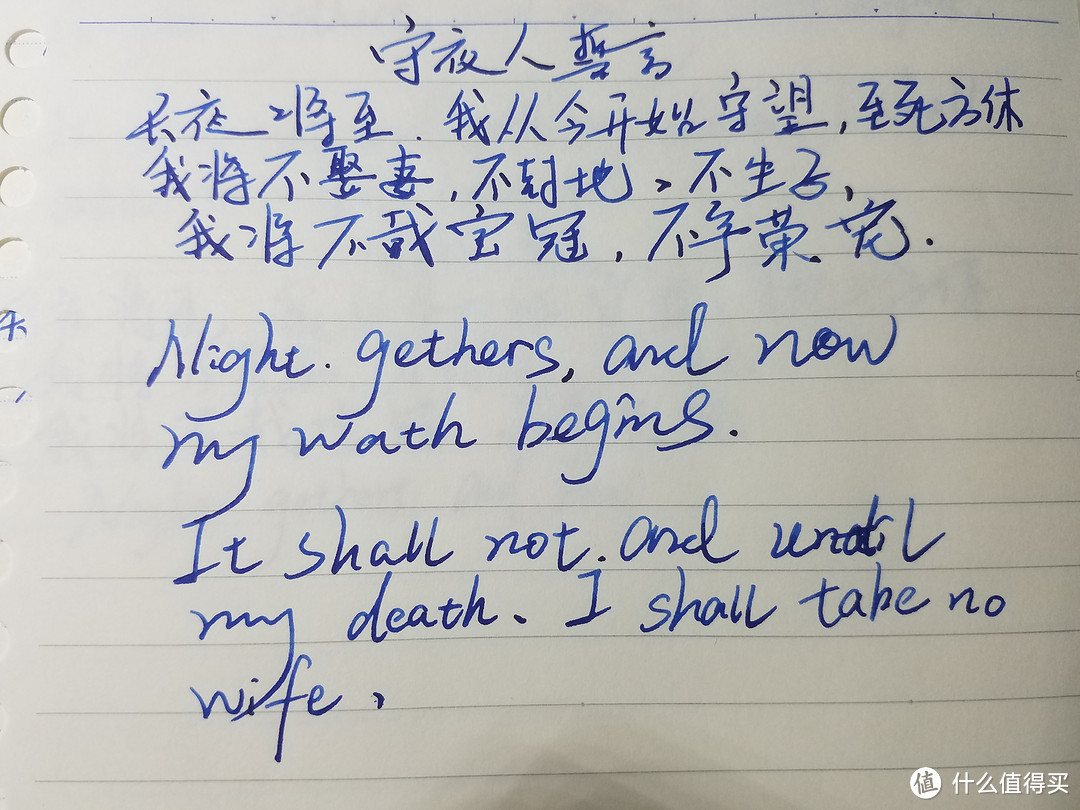 守夜人誓言
长夜将至.我从今开始守望,至死方休
我将不娶妻,不封地、不生子,
我将不戴宝冠,不争荣宠.
Night. gethers, and now
my wath begins.
It shall not. and until
my death. I shall take no
wife,
值 什么值得买